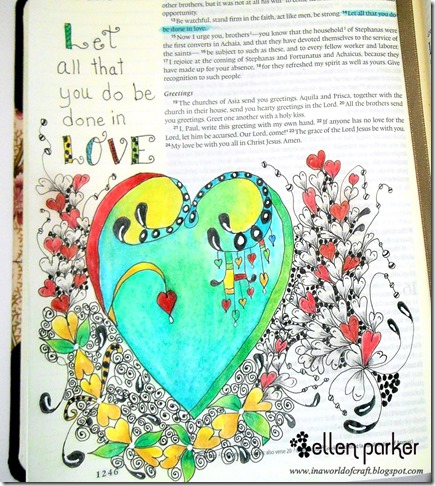 Let
all that
you do be
done in
LOVE
other brothers, but it was not at all his will
opportunity.
13 Be watchful, stand firm in the faith, act like men, be strong. 14 Let all that you do
be done in love.
15 Now I urge you, brothers—you know that the household of Stephanas were
the first converts in Achaia, and that they have devoted themselves to the service of
the saints— 16 be subject to such as these, and to every fellow worker and laborer.
17 I rejoice at the coming of Stephanas and Fortunatus and Achaicus, because they
have made up for your absence, 18 for they refreshed my spirit as well as yours. Give
recognition to such people.
Greetings
19 The churches of Asia send you greetings. Aquila and Prisca, together with the
church in their house, send you hearty greetings in the Lord. 20 All the brothers send
you greetings. Greet one another with a holy kiss.
21 I, Paul, write this greeting with my own hand. 22 If anyone has no love for the
Lord, let him be accursed. Our Lord, come! 23 The grace of the Lord Jesus be with you.
24 My love be with you all in Christ Jesus. Amen.
ellen parker
also verse 20
www.inaworldofcraft.blogspot.com
1246